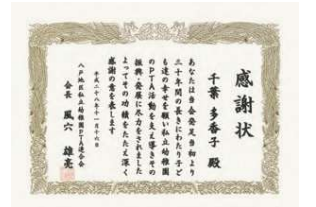 感謝状
千葉 多香子 殿
あなたは当会発足当初より
三十年間の長きにわたり子ど
も達の幸せを願い私立幼稚園
のPTA活動を支え導きその
振興・発展に尽力をされました
よってその功績をたたえ深く
感謝の意を表します
平成二十八年十一月十六日
八戸地区私立幼稚園PTA連合会
会長 風穴 雄亮